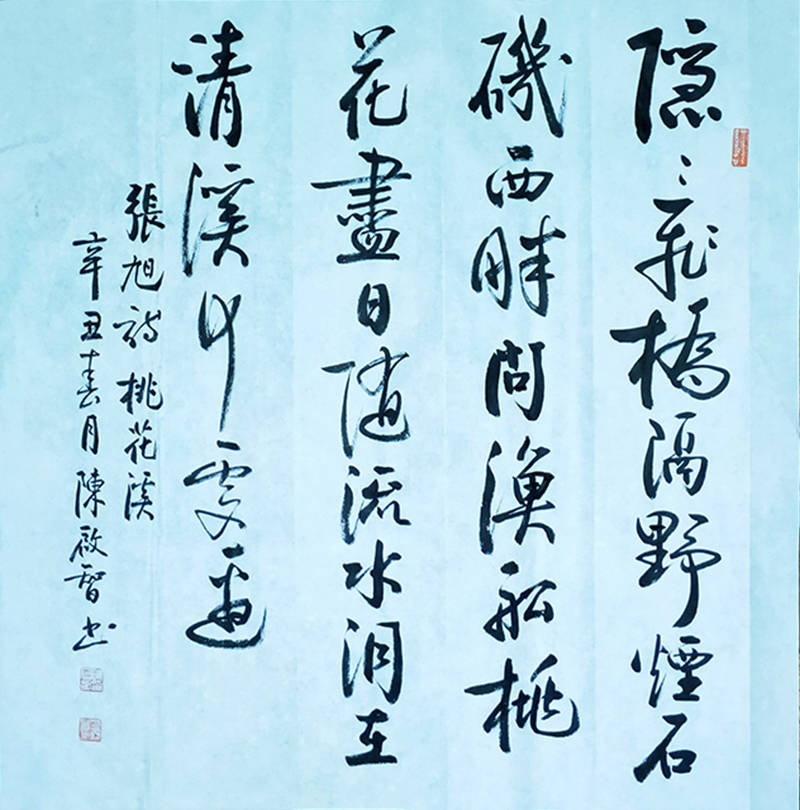 隱〻飛橋隔野煙石
磯西畔問漁船桃
花盡日隨流水洞在
清溪何處邊
張旭詩桃花溪
辛丑春月陳啟智书